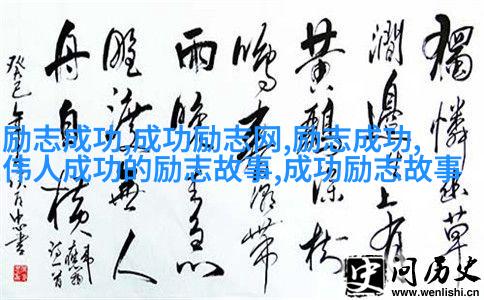 獨憐幽草
澗邊生上有
黃鸝深樹
鳴春潮帶
雨晚來急
野渡無人
舟自橫
癸巳年
励志成功,成功励志网,励志成功,
伟人成功的励志故事,成功励志故事
史问历史
www.wenlishi.cn